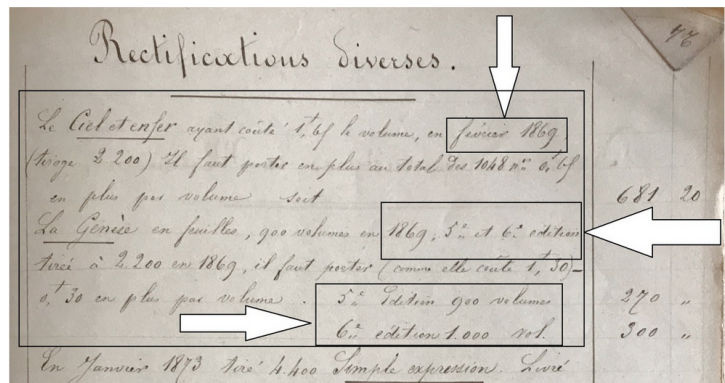 76
Rectifications diverses.
Le Ciel et enfer ayant coûté 1f,65 le volume, en février 1869
(tirage 2 200) Il faut porter en plus au total des 1048 nos 0f,65
en plus par volume soit 681 20
La Genèse en feuilles, 900 volumes en 1869, 5e et 6e edition
tirée à 2.200 en 1869, il faut porter (comme elle coûte 1f,30) —
0,f30 en plus par volume. 5e Edition 900 volumes 270 "
6e edition 1.000 vol. 300 "
En Janvier 1873 tiré 4.400 Simple expression. Livré